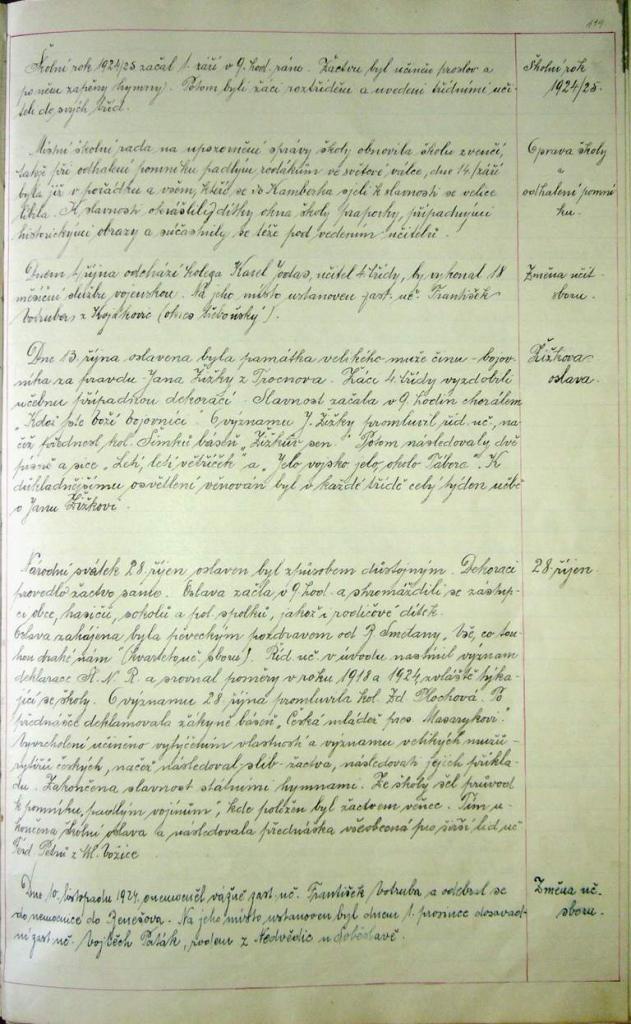 119
Školní rok 1924/25 začal 1. září v 9. hod. ráno. Žactvu byl učiněn proslov a
po něm zapěny hymny. Potom byli žáci roztříděni a uvedeni třídními uči-
teli do svých tříd.
Školní rok
1924/25.
Místní školní rada na upozornění správy školy obnovila školu zvenčí,
takže při odhalení pomníku padlým rodákům ve světové válce, dne 14. září
byla již v pořádku a všem, kteří se do Kamberka sjeli k slavnosti se velice
líbila. K slavnosti okrášlily dítky okna školy praporky, případnými
historickými obrazy a súčastnily se též pod vedením učitelů.
Oprava školy
a
odhalení pomní
ku.
Dnem 1. října odchází kolega Karel Jodas, učitel 4. třídy, by vykonal 18
měsíční službu vojenskou. Na jeho místo ustanoven zast. uč. František
Votruba z (okres třeboňský).
Změna učit.
sboru.
Dne 13. října oslavena byla památka velikého muže činu - bojov-
níka za pravdu Jana Žižky z Trocnova. Žáci 4. třídy vyzdobili
učebnu případnou dekorací. Slavnost začala v 9 hodin chorálem
"Kdož jste boží bojovníci". O významu J. Žižky promluvil říd. uč., na
čež přednesl kol. Šimků báseň "Žižkův sen". Potom následovaly dvě
písně a sice "Letí, letí větříček" a "Jelo vojsko jelo, okolo Tábora". K
důkladnějšímu osvětlení věnován byl v každé třídě celý týden učebě
o Janu Žižkovi.
Žižkova
oslava.
Národní svátek 28. říjen oslaven byl způsobem důstojným. Dekoraci
provedlo žactvo samo. Oslava začla v 9 hod. a shromáždili se zástup-
ci obce, hasičů, sokolů a pol. spolků, jakož i rodičové dítek.
Oslava zahájena byla pěveckým pozdravem od B. Smetany "Vše, co tou-
hou drahé nám" (kvarteto uč. sboru). Říd. uč. v úvodu nastínil význam
deklarace A. N. R. a srovnal poměry v roku 1918 a 1924 zvláště týka-
jící se školy. O významu 28. října promluvila kol. Zd. Plochová. Po
přednášce deklamovala žákyně báseň "Česká mládež pres. Masarykovi."
Vyvrcholení učiněno vytyčením vlastností a významu velikých mužů -
rytířů českých, načež následoval slib žactva, následovati jejich příkla-
du. Zakončena slavnost státními hymnami. Ze školy šel průvod
k pomníku "padlým vojínům", kde položen byl žactvem věnec. Tím u-
končena školní oslava a následovala přednáška všeobecná pro širší lid uč.
Ferd. Petrů z Ml. Vožice.
28. říjen.
Dne 10. listopadu 1924 onemocněl vážně zast. uč. František Votruba a odebral se
do nemocnice do Benešova. Na jeho místo ustanoven byl dnem 1. prosince dosavad-
ní zast. uč. Vojtěch Paták, rodem z Nedvědic u Soběslavě.
Změna uč.
sboru.